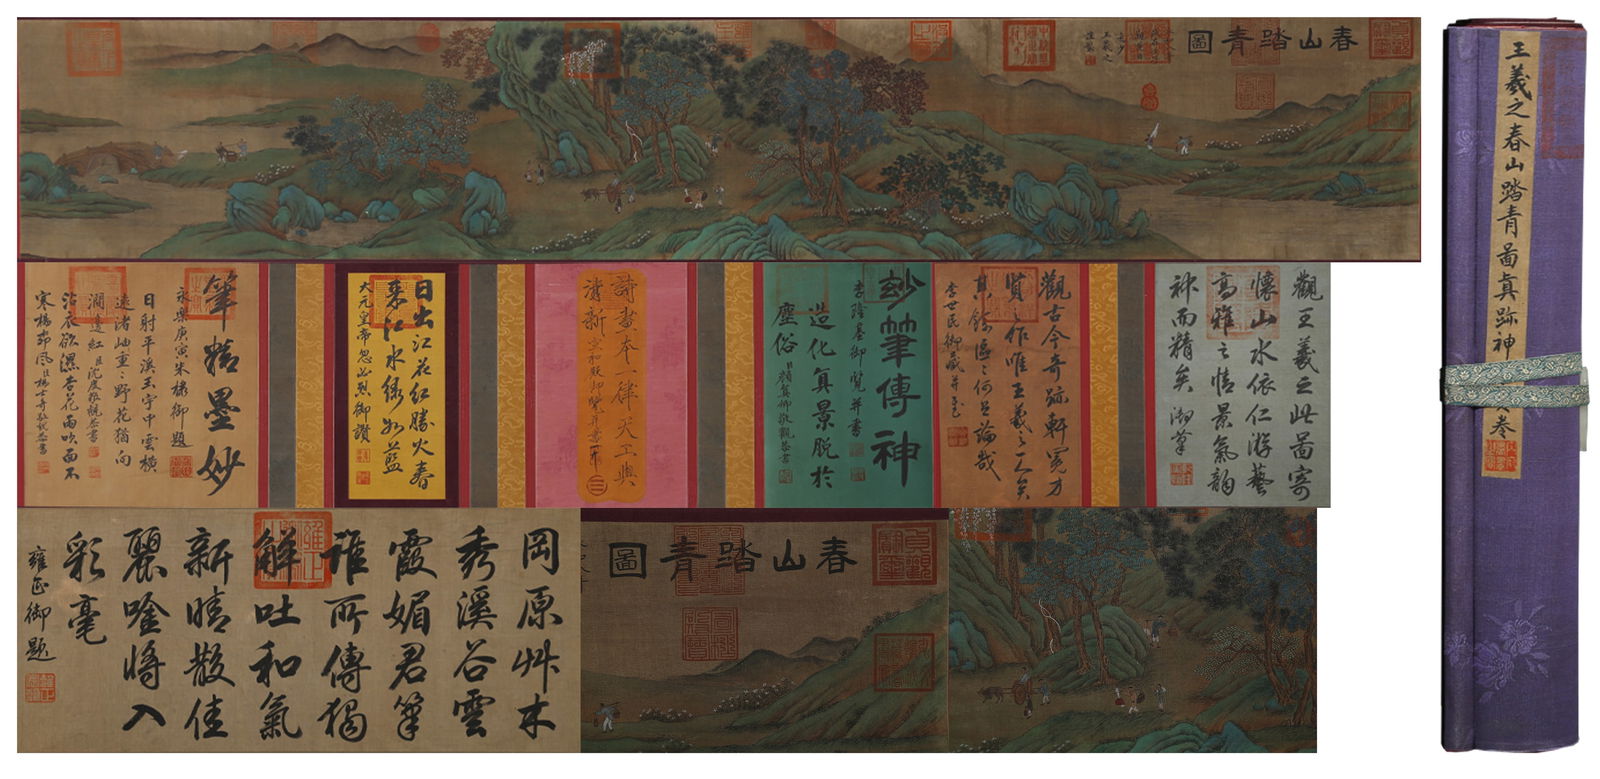 春山踏青圖
王羲之
觀王羲之此圖寄
懷山水依仁游藝
高雅之情景氣韻
神而精矣
觀古今奇跡軒冕才
賢之作唯王羲之一人矣
其餘區區何足論哉
李世民御藏并書
妙筆傳神
李隆基御覽并書
造化真景脫於
塵俗
詩畫本一律天工與
清新
宣和殿御覽并書
日出江花紅勝火春
來江水綠如藍
大元皇帝忽必烈御讚
筆精墨妙
永樂庚寅朱棣御題
日射平溪玉宇中雲橫
遠渚岫重重野花猶向
澗邊紅
沾衣欲濕杏花雨吹面不
寒楊柳風
岡原艸木
秀溪谷雲
霞媚君筆
誰所傳獨
解吐和氣
新晴散佳
麗唫將入
彩毫
雍正御題
春山踏青圖
王羲之春山踏青圖真跡神
卷